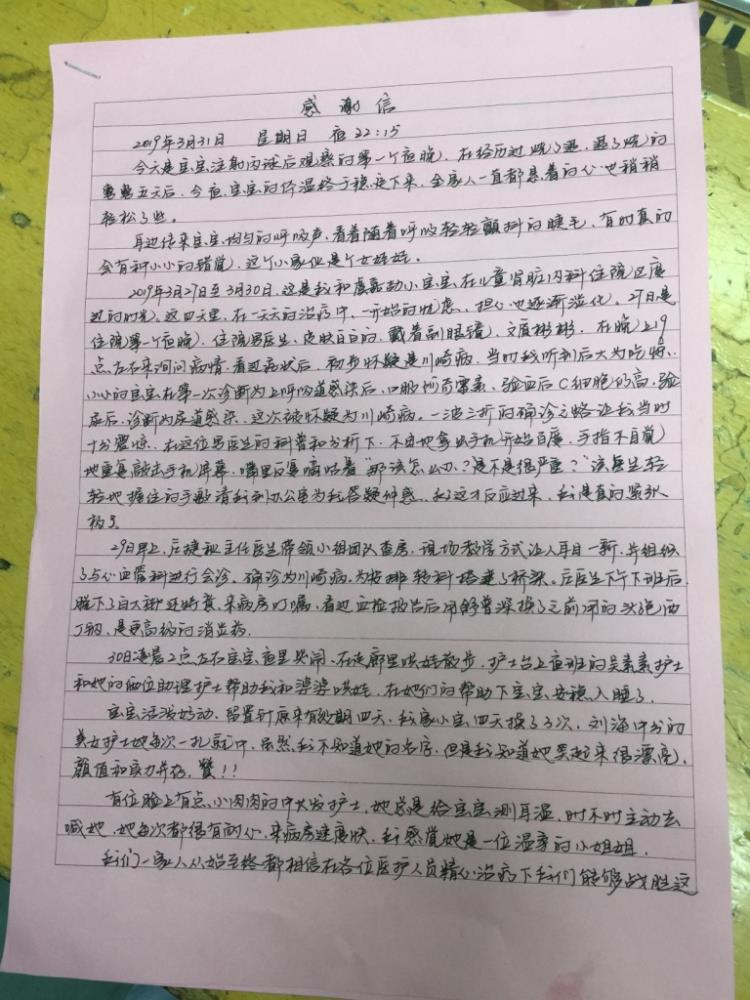 感谢信
2019年3月31日 星期日 夜22:15
今天是宝宝注射丙球后观察的第一个夜晚，在经历过烧了退，退了烧的
五天后，今夜，宝宝的体温终于稳定下来，全家人一直都悬着的心也稍稍
轻松了些。
耳边传来宝宝均匀的呼吸声，看着随着呼吸轻轻颤抖的睫毛，有时真的
会有种小小的错觉，这个小家伙是个女娃娃。
2019年3月27日至3月30日，这是我和小宝宝在儿童肾脏内科住院区度
过的时光。这四天里，在一天天的治疗中，一开始的忧虑、担心也逐渐淡化。27日是
住院第一个夜晚，住院男医生，皮肤白白的，戴着副眼镜，文质彬彬，在晚上9
点左右来询问病情，看过症状后，初步怀疑是川崎病，当时我听到后大为吃惊，
小小的宝宝在第一次诊断为上呼吸道感染后，口服阿奇霉素，验血后C细胞仍高，验
尿后，诊断为尿道感染，这次被怀疑为川崎病。一波三折的确诊之路让我当时
十分震惊，在这位男医生的科普和分析下，不由地拿出手机开始百度，手指不自觉
地重复敲击手机屏幕，嘴里反复嘀咕着“那该怎么办？是不是很严重？”该医生轻
轻地握住的手邀请我到办公室为我答疑解惑，我这才反应过来，我是真的紧张
极了。
29日早上，主任医生带领小组团队查房，现场教学方式让人耳目一新，并组织
了与心血管科进行会诊，确诊为川崎病，为安排转科搭建了桥梁。庄医生下午下班后
脱下了白大褂还特意来病房叮嘱，看过血检报告后用舒普深换了之前用的头孢西
丁钠，是更高级的消炎药。
30日凌晨2点左右宝宝夜里哭闹，在走廊里哄娃散步，护士台上夜班的吴素素护士
和她的两位助理护士帮助我和婆婆哄娃，在她们的帮助下宝宝安稳入睡了。
宝宝活泼好动，留置针原来有效期四天，我家小宝四天换了3次，刘海中分的
美女护士她每次一扎就中，虽然我不知道她的名字，但是我知道她笑起来很漂亮，
颜值和实力并存，赞！！
有位脸上有点小肉肉的中大发护士，她总是给宝宝测耳温，时不时主动去
喊她，她每次都很有耐心，来病房速度快，我感觉她是一位温柔的小姐姐。
我们一家人从始至终都相信在各位医护人员精心治疗下我们能够战胜这